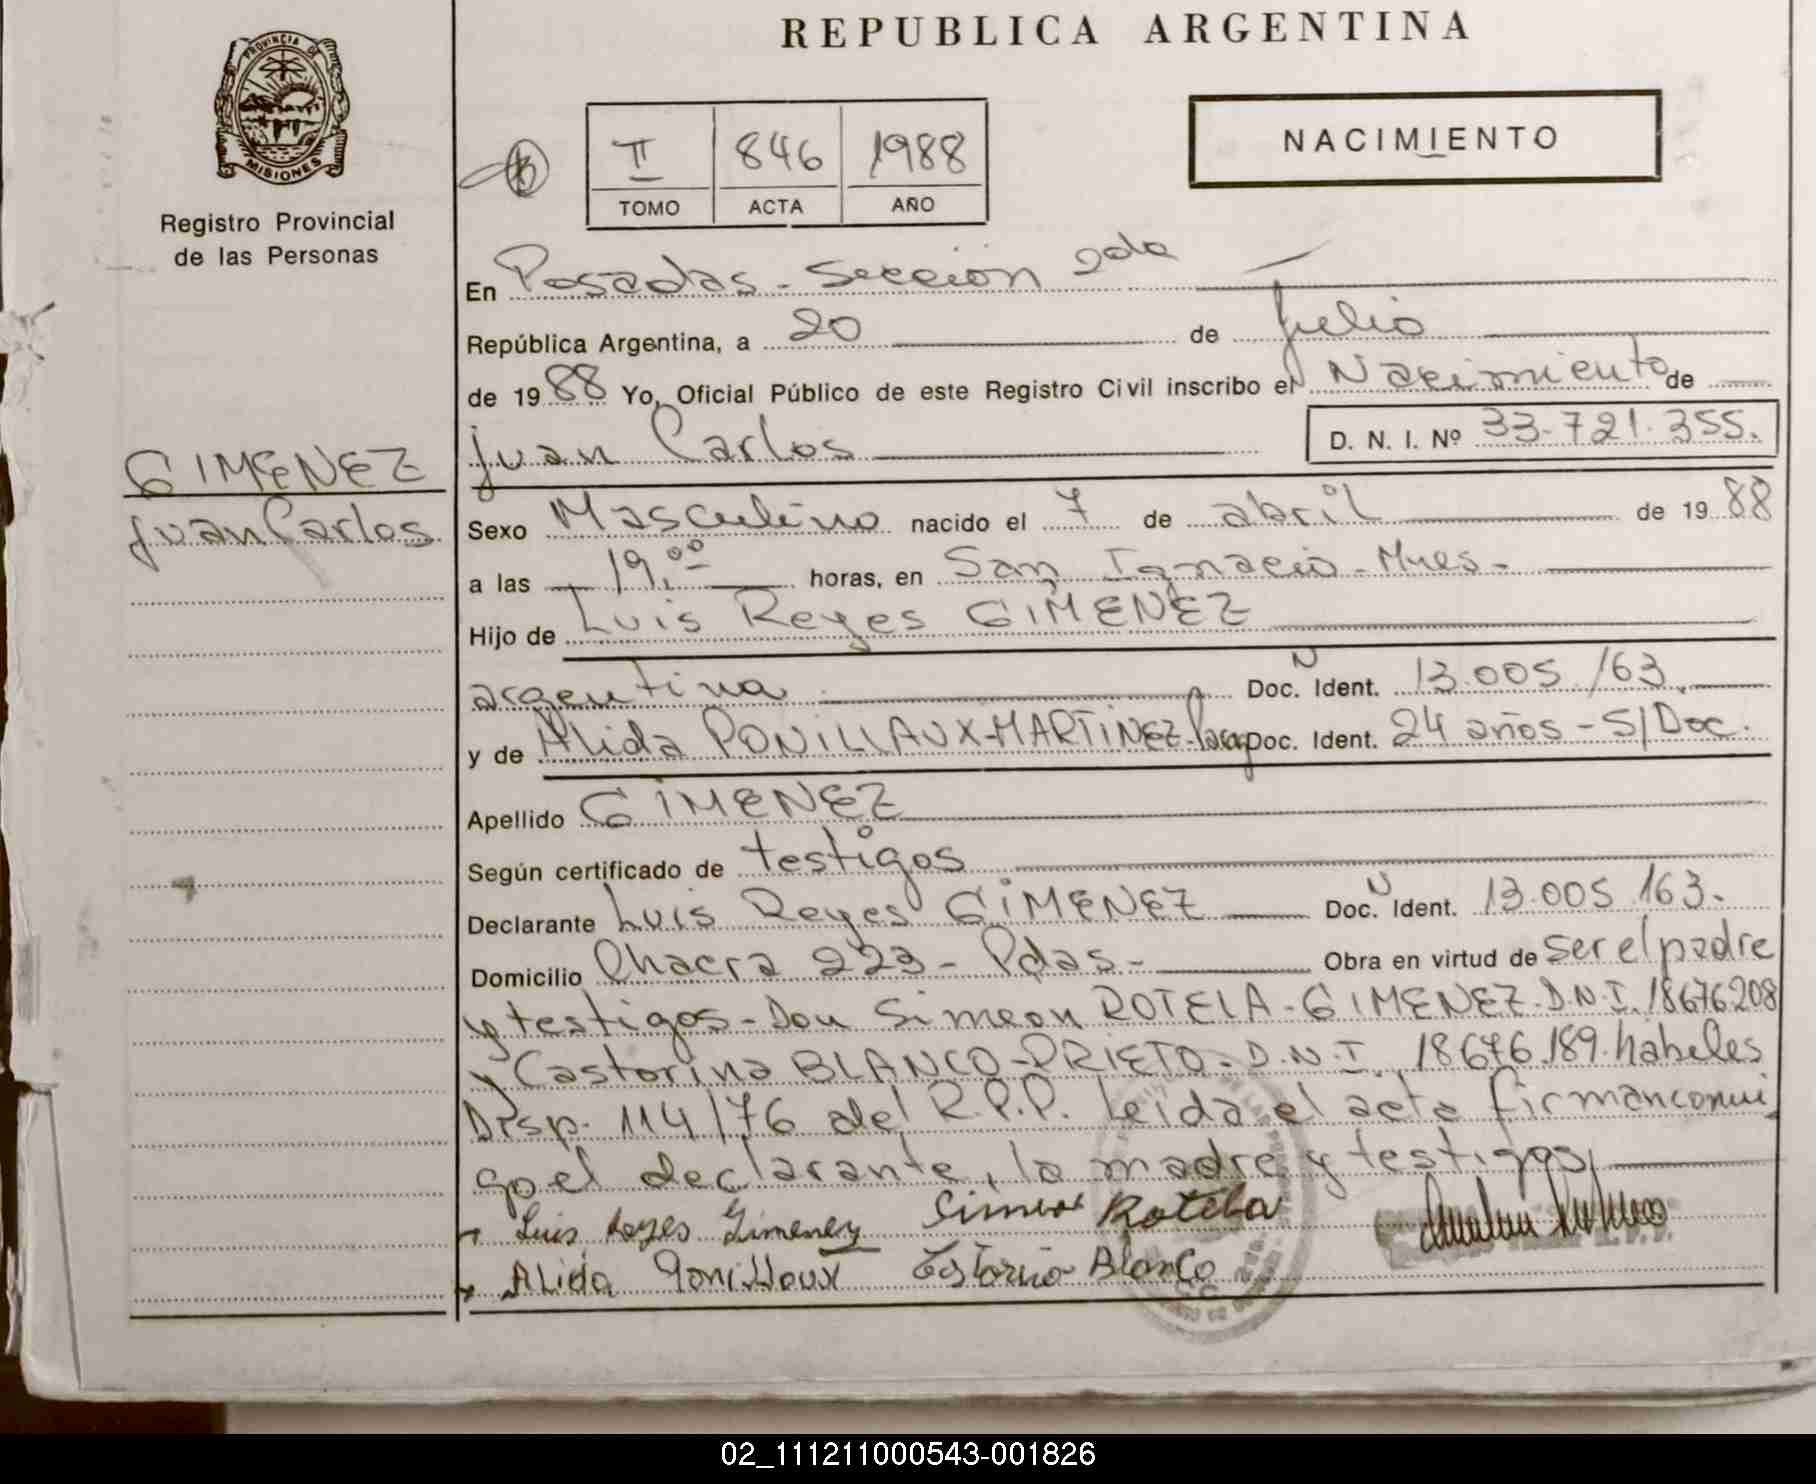 REPUBLICA ARGENTINA
PROVINCIA DE
MISIONES
Registro Provincial
de las Personas
NACIMIENTO
II 846 1988
TOMO ACTA AÑO
En Posadas - Sección 2da
República Argentina, a 20 de Julio
de 1988 Yo, Oficial Público de este Registro Civil inscribo el Nacimiento de
Juan Carlos D. N. I. Nº 33.721.355.
GIMENEZ
Juan Carlos
Sexo Masculino nacido el 7 de abril de 1988
a las 19.00 horas, en San Ignacio - Mnes -
Hijo de Luis Reyes GIMENEZ
argentina Doc. N Ident. 13.005 163.
y de Alida PONILLAUX-MARTINEZ- Doc. Ident. 24 años - S/Doc.
Apellido GIMENEZ
Según certificado de testigos
Declarante Luis Reyes GIMENEZ Doc. N Ident. 13.005 163.
Domicilio Chacra 223 - Pdas - Obra en virtud de ser el padre
y testigos - Don Simeon ROTELA - GIMENEZ - D.N.I. 18676208
y Castorina BLANCO - PRIETO - D.N.I. 18676.189. habeles
Disp. 114/76 del R.P.P. leida el acta firman conmi
go el declarante, la madre y testigos
Luis Reyes Gimenez Simeon Rotela
Alida Ponillaux Castorina Blanco
02_111211000543-001826